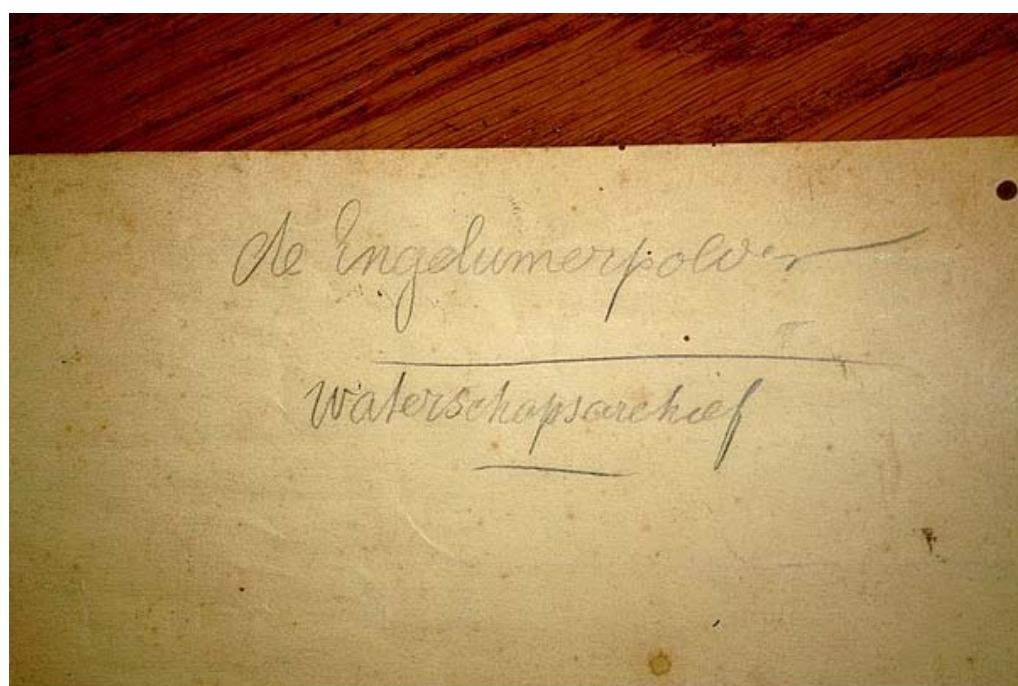 de Engelumerpolder
Waterschapsarchief